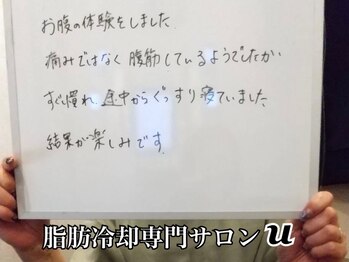 お腹の体験をしました
痛みではなく腹筋しているようでしたが
すぐ慣れ、途中からぐっすり寝ていました
結果が楽しみです。
脂肪冷却専門サロン u